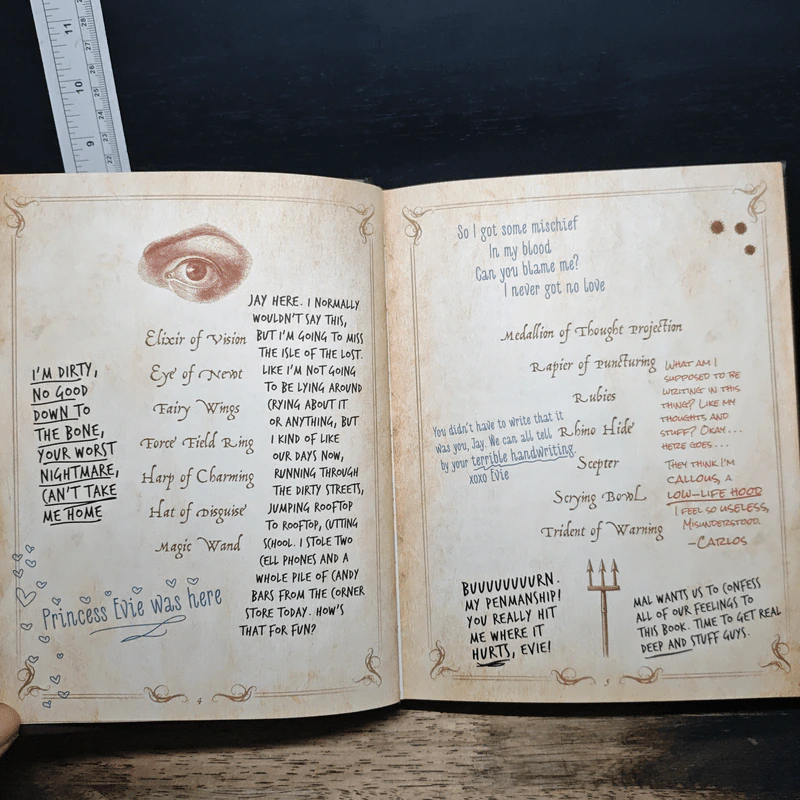 11
10
9
28
27
26
25
24
23
22
Elixir of Vision
Eye of Newt
Fairy Wings
Force Field Ring
Harp of Charming
Hat of Disguise
Magic Wand
I'M DIRTY,
NO GOOD
DOWN TO
THE BONE,
YOUR WORST
NIGHTMARE,
CAN'T TAKE
ME HOME
JAY HERE. I NORMALLY
WOULDN'T SAY THIS,
BUT I'M GOING TO MISS
THE ISLE OF THE LOST.
LIKE I'M NOT GOING
TO BE LYING AROUND
CRYING ABOUT IT
OR ANYTHING, BUT
I KIND OF LIKE
OUR DAYS NOW,
RUNNING THROUGH
THE DIRTY STREETS,
JUMPING ROOFTOP
TO ROOFTOP, CUTTING
SCHOOL. I STOLE TWO
CELL PHONES AND A
WHOLE PILE OF CANDY
BARS FROM THE CORNER
STORE TODAY. HOW'S
THAT FOR FUN?
Princess Evie was here
4
So I got some mischief
In my blood
Can you blame me?
I never got no love
Medallion of Thought Projection
Rapier of Puncturing
Rubies
Rhino Hide
Scepter
Scrying Bowl
Trident of Warning
You didn't have to write that it
was you, Jay. We can all tell
by your terrible handwriting.
xoxo Evie
WHAT AM I
SUPPOSED TO BE
WRITING IN THIS
THING? LIKE MY
THOUGHTS AND
STUFF? OKAY...
HERE GOES...
THEY THINK I'M
CALLOUS, A
LOW-LIFE HOOD
I FEEL SO USELESS,
MISUNDERSTOOD.
-CARLOS
BUUUUUUUURN.
MY PENMANSHIP!
YOU REALLY HIT
ME WHERE IT
HURTS, EVIE!
MAL WANTS US TO CONFESS
ALL OF OUR FEELINGS TO
THIS BOOK. TIME TO GET REAL
DEEP AND STUFF GUYS.
5